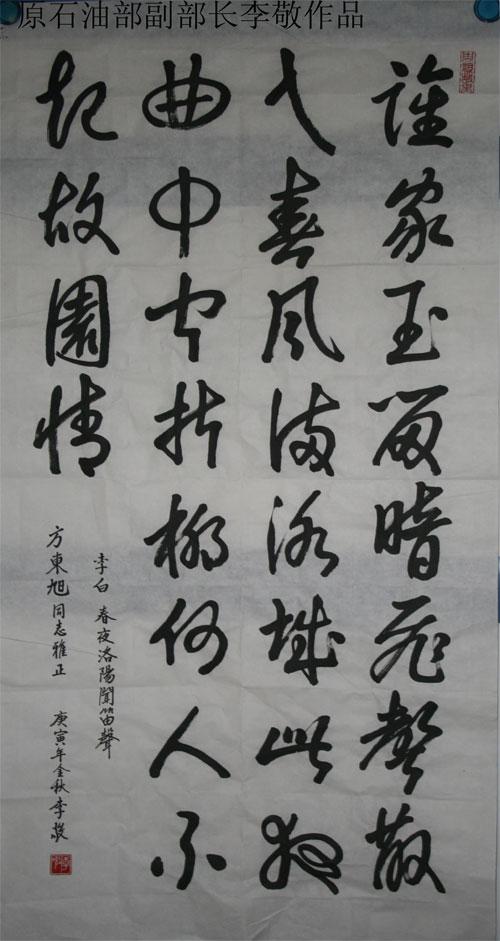 原石油部副部长李敬作品
誰家玉笛暗飛聲散
入春風滿洛城此夜
曲中聞折柳何人不
起故園情
李白 春夜洛陽聞笛聲
方東旭同志雅正 庚寅年金秋李敬